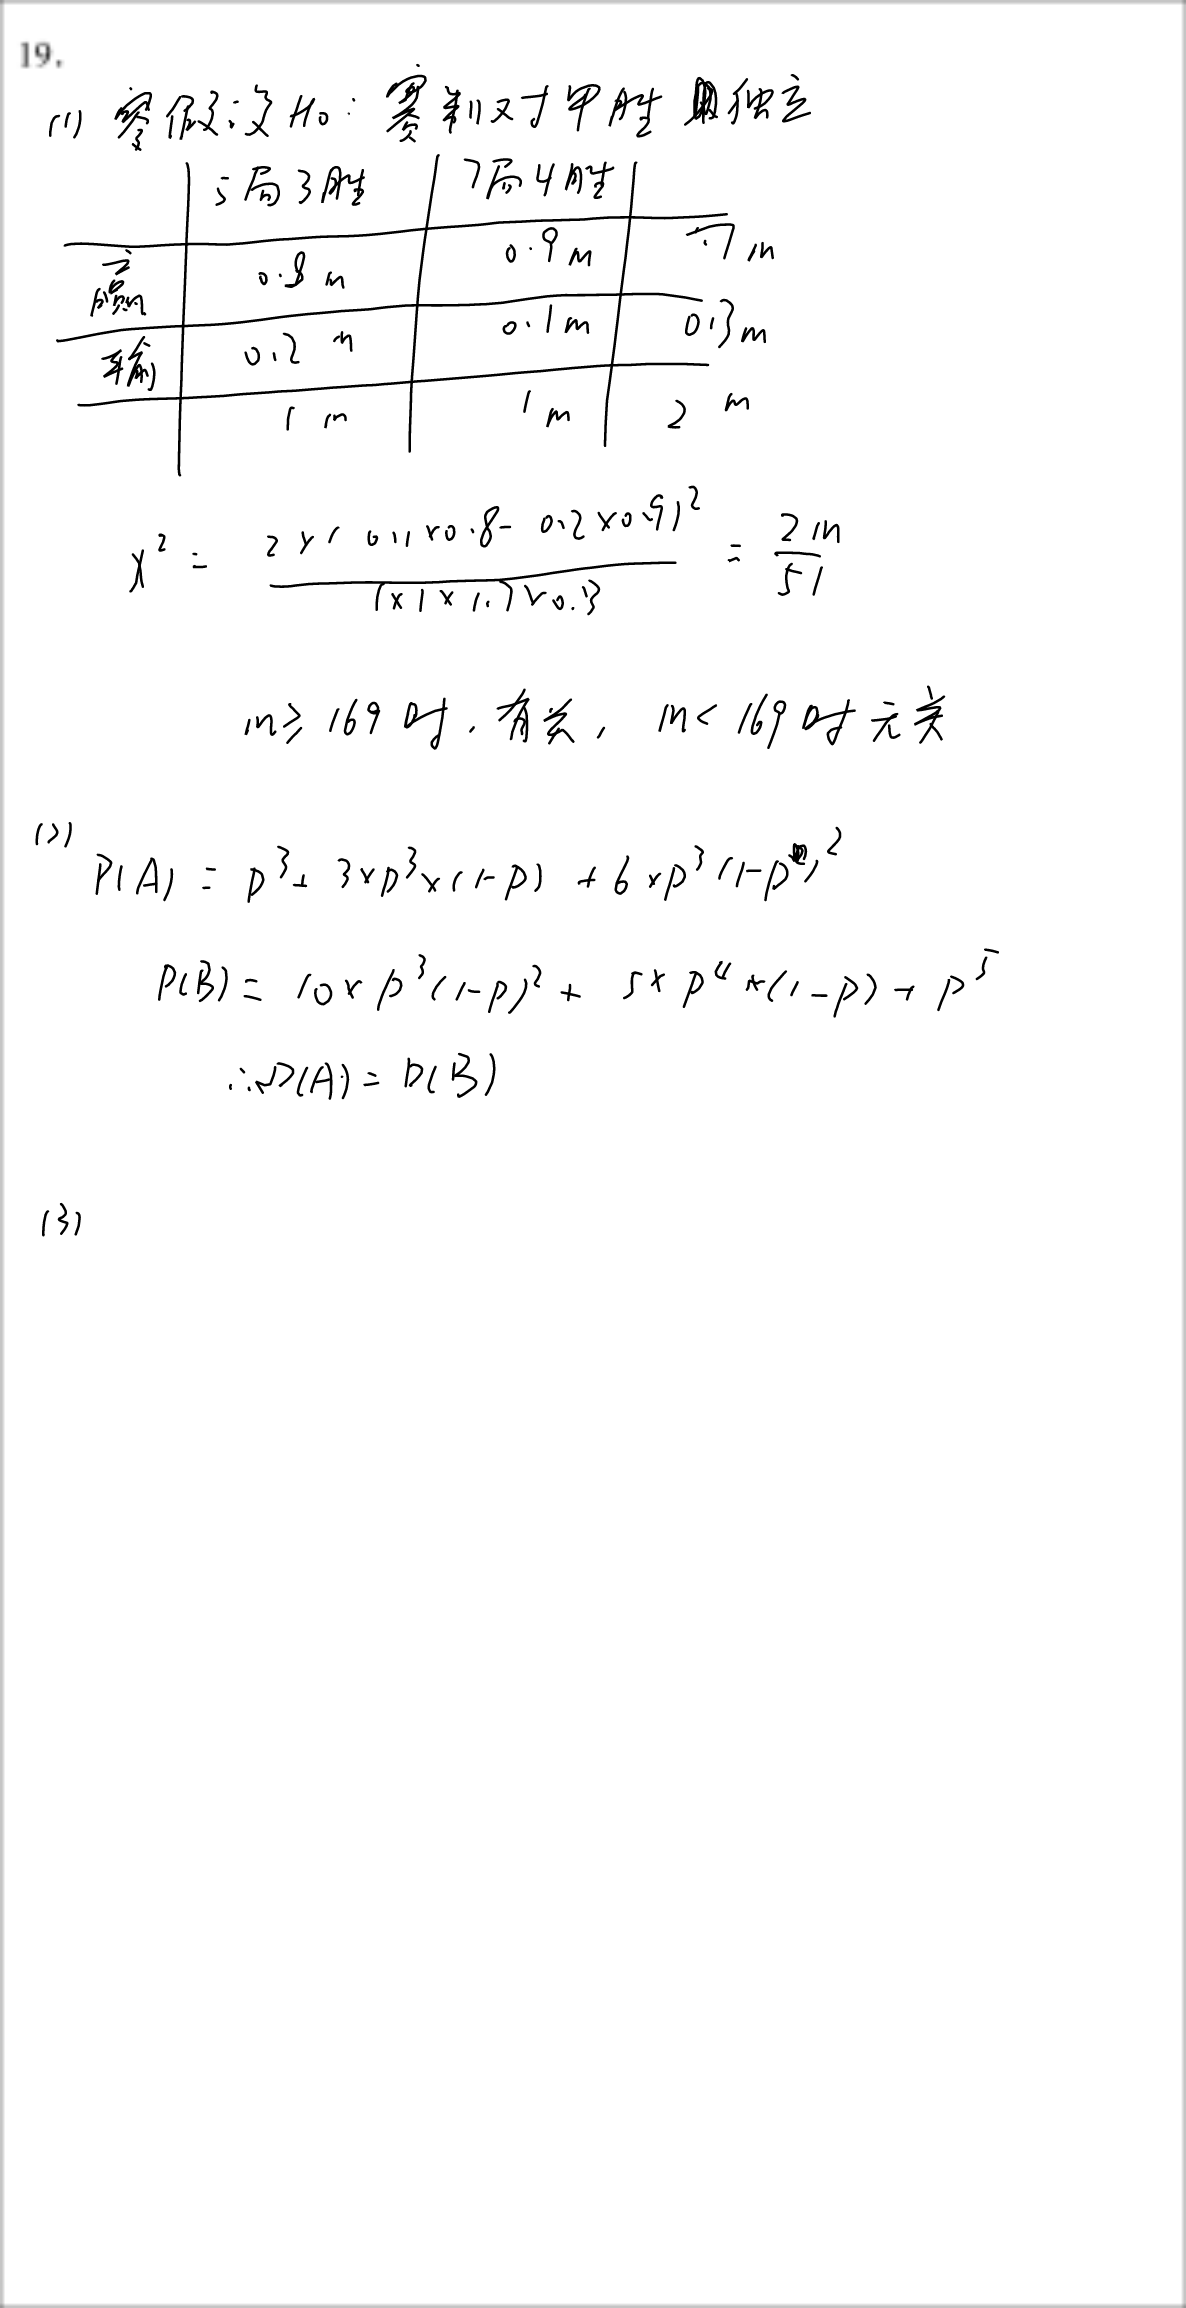 19.
(1) 零假设H₀：赛制对甲胜独立
5局3胜 7局4胜
赢 0.8m 0.9m 1.7m
输 0.2m 0.1m 0.3m
1m 1m 2m
χ² = 2×(0.1×0.8-0.2×0.9)² / 1×1×1.7×0.3 = 2m/51
m≥169时，有关，m<169时无关
(2)
P(A) = p³+3×p³×(1-p)+6×p³(1-p)²
P(B) = 10×p³(1-p)²+5×p⁴×(1-p)+p⁵
∴P(A)=P(B)
(3)